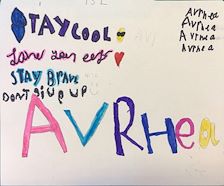 STAYCOOL
Love you
STAY BRAVE
DONT GIV UP
AVRHea
AVRHea
AVRHea
AVRHea
AVRHea